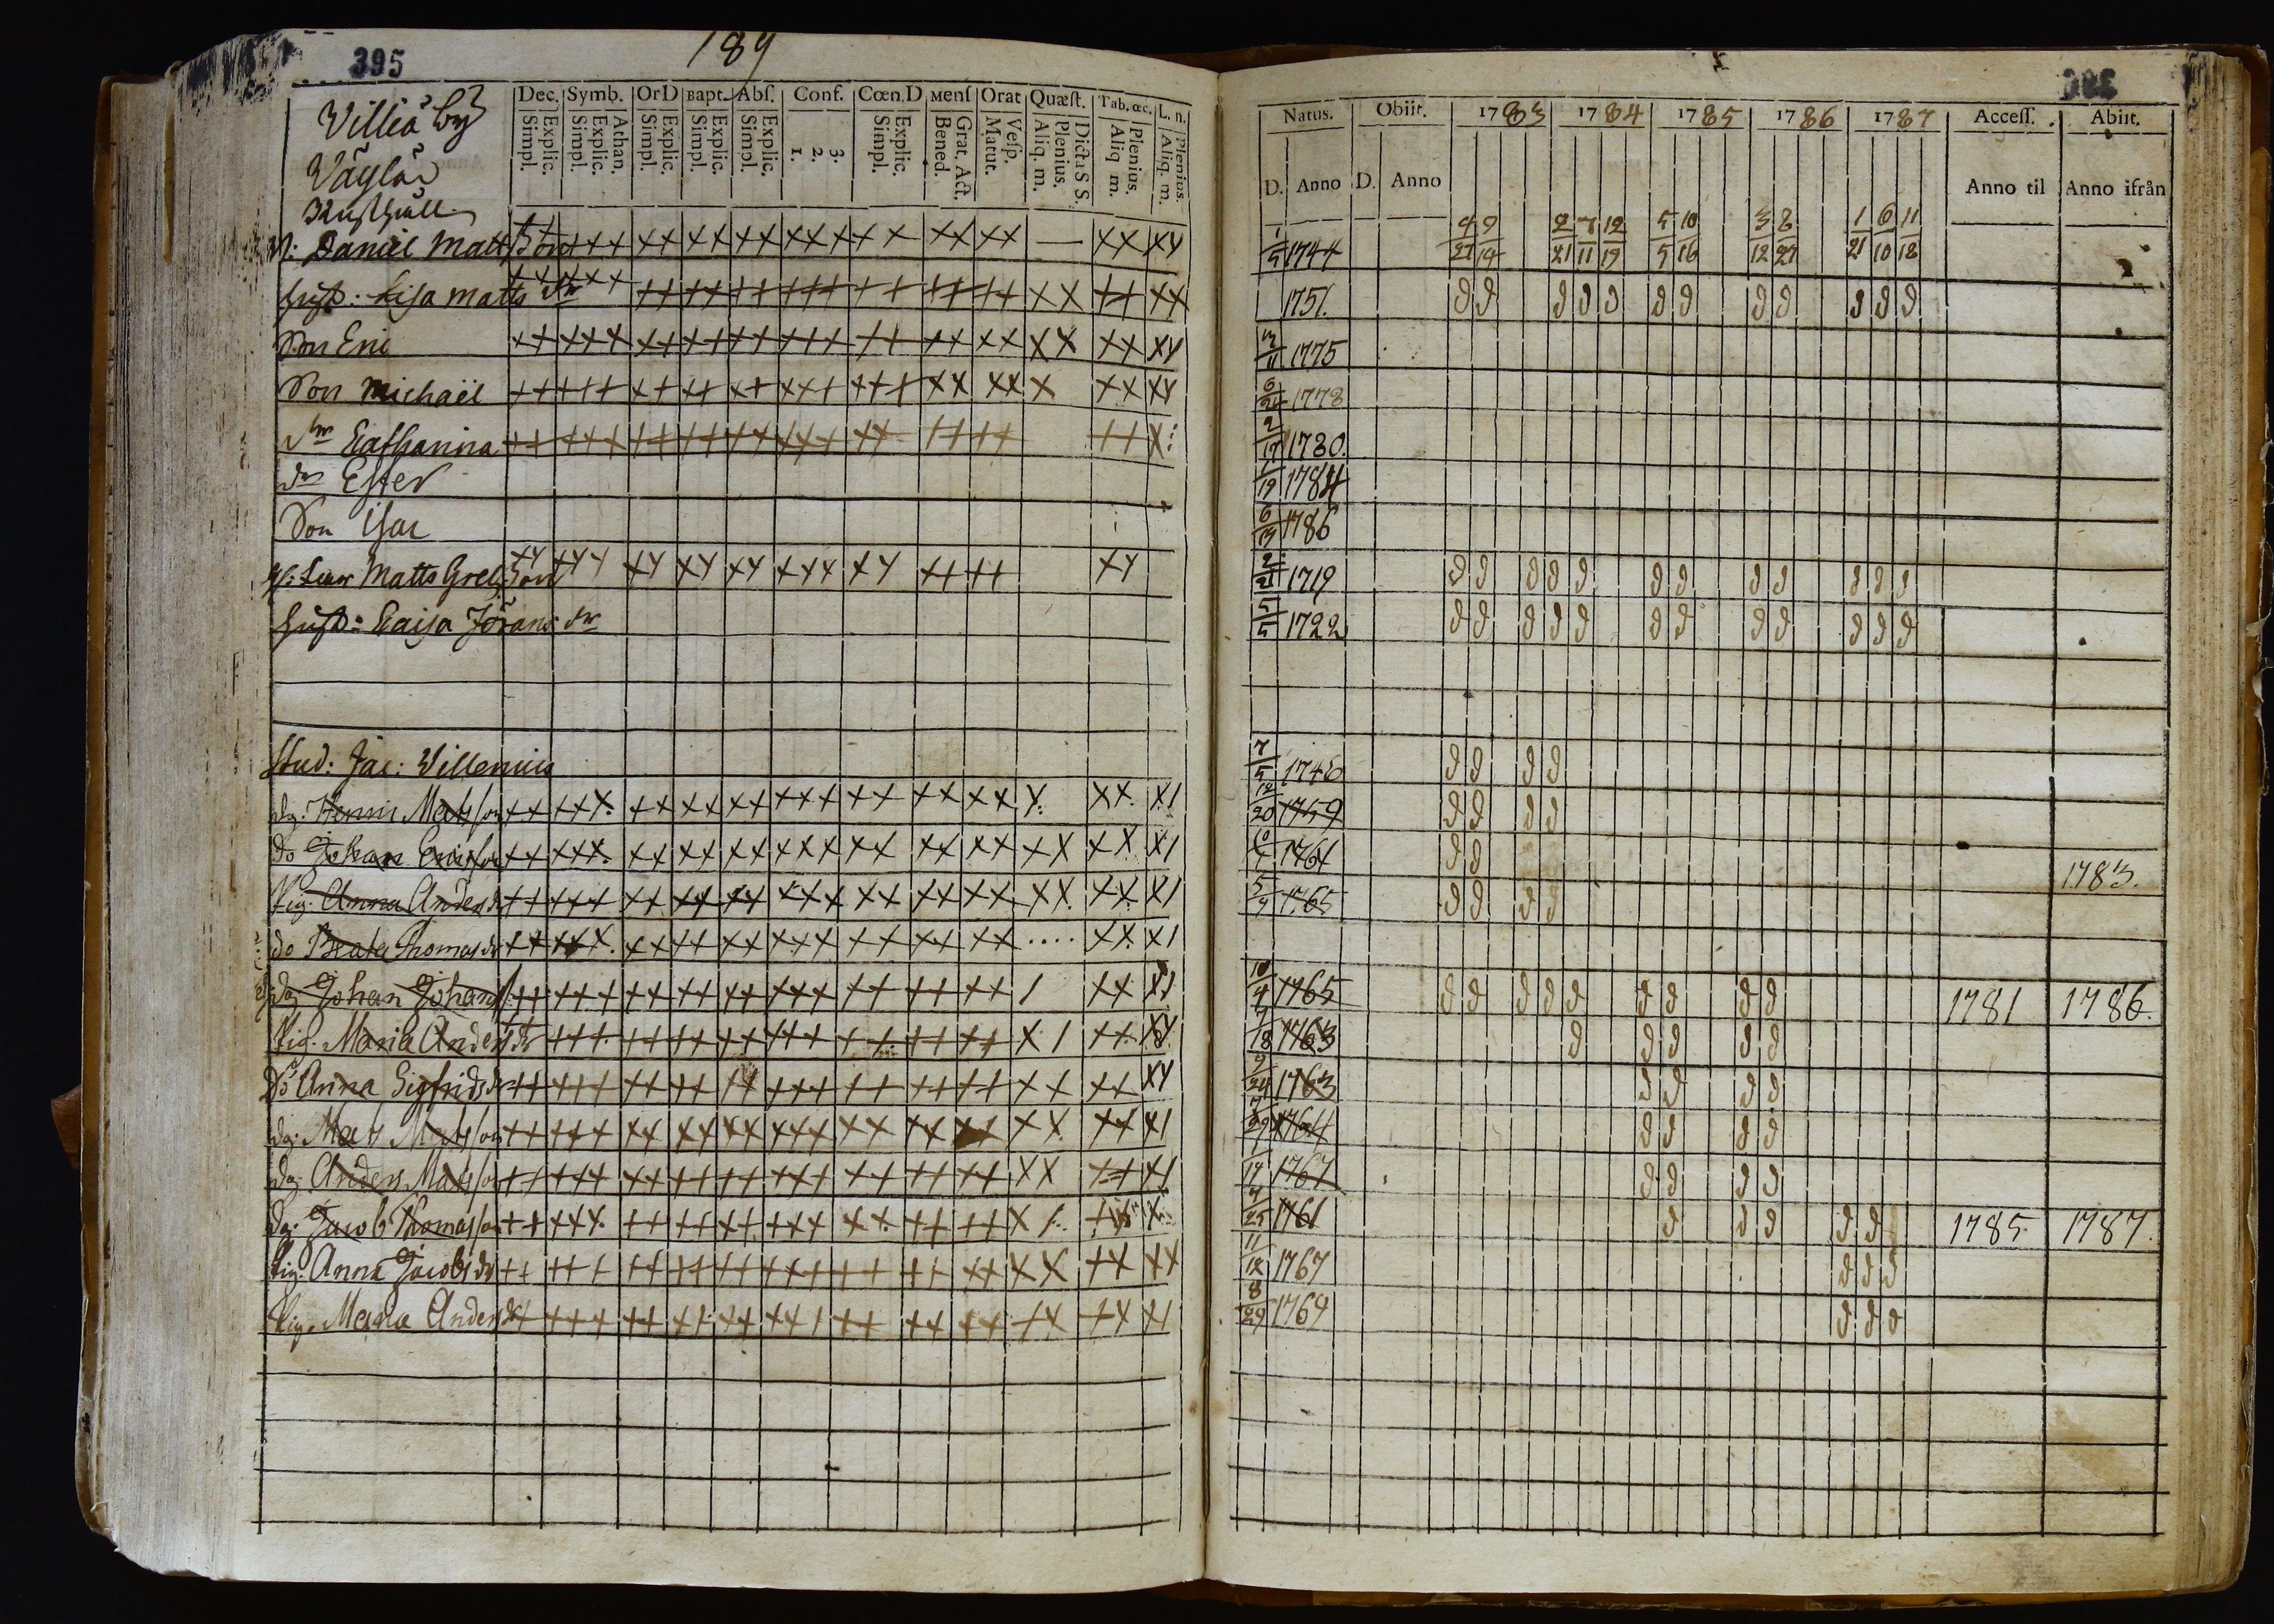 395
189
Villiä by
Wäylä
Rusthåll
Dec. Symb. OrD Bapt. Abſ. Conf. Cœn.D Menſ Orat Quæſt. Tab.œc. L. n.
Explic. Simpl.
Athan. Explic. Simpl.
Explic. Simpl.
Explic. Simpl.
Explic. Simpl.
3. 2. 1.
Explic. Simpl.
Grat. Act. Bened.
Veſp. Matut.
Dicta S S. Plenius. Aliq. m.
Plenius. Aliq m.
Plenius. Aliq. m.
Natus. Obiit. 1783 1784 1785 1786 1787 Acceſſ. Abiit.
D. Anno D. Anno Anno til Anno ifrån
4 9 2 7 12 5 10 3 8 1 6 11
21 14 21 11 19 5 16 12 27 21 10 18
Daniel Matts Son 1/5 1744
hust: Lisa Matts dr 1751.
Son Eric 1775
Son Michaël 6/24 1778
dr Catharina 2/17 1780.
dr Ester 1/19 1784
Son Isac 6/13 1786
Matts Greg Son 2/21 1719
hust: Caisa Jörans dr 5/5 1722
Stud: Jac: Willenius 7/5 1746
dg: Henric Matsson 12/20 1759
do Johan Ericsson 1764 1783.
Pig: Anna Anders dr 5/9 1765
do Beata Thomas dr
dg Johan Johans 10/4 1765 1781 1786.
Pig. Maria Anders dr 7/18 1763
Do Anna Sigfrids dr 9/24 1763
dg: Mats Matsson 7/29 1764
dg: Anders Matsson 1/17 1767
dg: Jacob Thomasson 4/25 1761 1785. 1787.
Pig: Anna Jacobs dr 11/12 1767
Pig. Maria Anders dr 8/29 1769